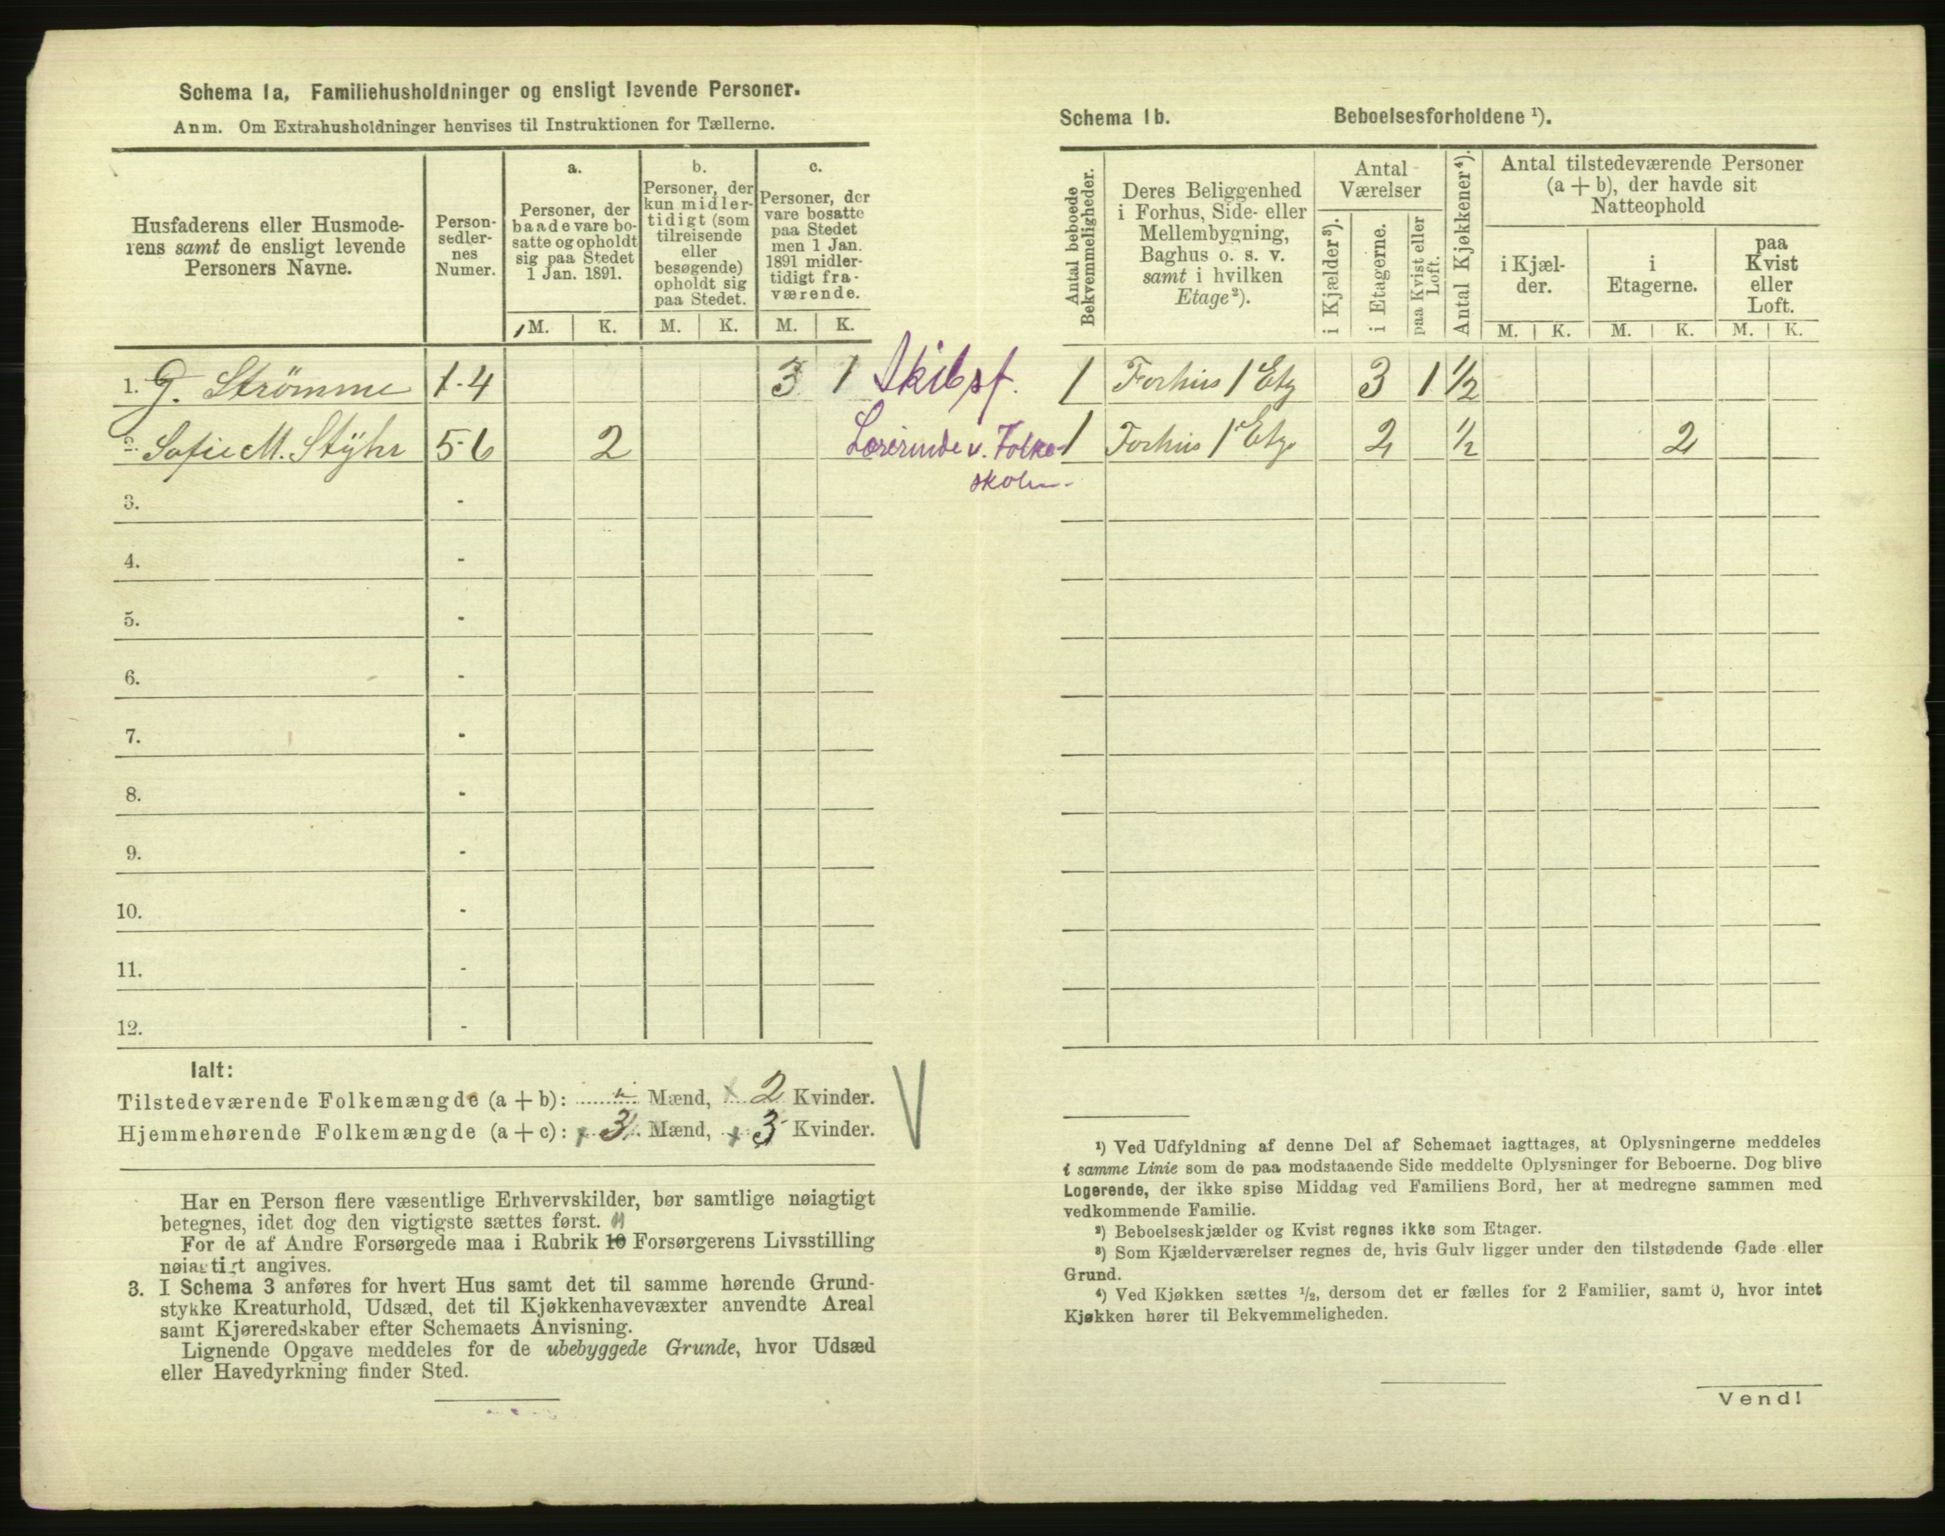 Schema 1a, Familiehusholdninger og ensligt levende Personer.
Anm. Om Extrahusholdninger henvises til Instruktionen for Tællerne.
Husfaderens eller Husmoderens samt de ensligt levende Personers Navne.
Personsedlernes Numer.
a.
Personer, der baade vare bosatte og opholdt sig paa Stedet 1 Jan. 1891.
b.
Personer, der kun midlertidigt (som tilreisende eller besøgende) opholdt sig paa Stedet.
c.
Personer, der vare bosatte paa Stedet men 1 Jan. 1891 midlertidigt fraværende.
M. K. M. K. M. K.
1. G. Strömme 1-4 3 1 Skibsf.
2. Sofie M. Stÿhr 5-6 2 Lærerinde v. Folke-
skolen
3. -
4. -
5. -
6. -
7. -
8. -
9. -
10. -
11. -
12. -
Ialt:
Tilstedeværende Folkemængde (a + b): Mænd, 2 Kvinder.
Hjemmehørende Folkemængde (a + c): 3 Mænd, 3 Kvinder.
Har en Person flere væsentlige Erhvervskilder, bør samtlige nøiagtigt
betegnes, idet dog den vigtigste sættes først.
For de af Andre Forsørgede maa i Rubrik 10 Forsørgerens Livsstilling
nøiagtigt angives.
3. I Schema 3 anføres for hvert Hus samt det til samme hørende Grund-
stykke Kreaturhold, Udsæd, det til Kjøkkenhavevæxter anvendte Areal
samt Kjøreredskaber efter Schemaets Anvisning.
Lignende Opgave meddeles for de ubebyggede Grunde, hvor Udsæd
eller Havedyrkning finder Sted.
Schema 1b. Beboelsesforholdene ¹).
Antal beboede Bekvemmeligheder.
Deres Beliggenhed i Forhus, Side- eller Mellembygning, Baghus o. s. v. samt i hvilken Etage ²).
Antal Værelser
i Kjælder ³).
i Etagerne.
paa Kvist eller Loft.
Antal Kjøkkener ⁴).
Antal tilstedeværende Personer
(a + b), der havde sit
Natteophold
i Kjælder.
i Etagerne.
paa Kvist eller Loft.
M. K. M. K. M. K.
1 Forhus 1 Etg 3 1 ½
1 Forhus 1 Etg. 2 ½ 2
¹) Ved Udfyldning af denne Del af Schemaet iagttages, at Oplysningerne meddeles
i samme Linie som de paa modstaaende Side meddelte Oplysninger for Beboerne. Dog blive
Logerende, der ikke spise Middag ved Familiens Bord, her at medregne sammen med
vedkommende Familie.
²) Beboelseskjælder og Kvist regnes ikke som Etager.
³) Som Kjælderværelser regnes de, hvis Gulv ligger under den tilstødende Gade eller
Grund.
⁴) Ved Kjøkken sættes ½, dersom det er fælles for 2 Familier, samt 0, hvor intet
Kjøkken hører til Bekvemmeligheden.
Vend!